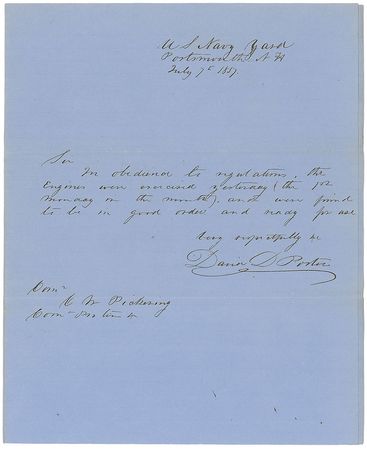 U S Navy Yard
Portsmouth, N H
July 7th 1857.
Sir
In obedience to regulations, the
Engines were exercised yesterday (the 1st
monday in the month), and were found
to be in good order and ready for use
Very respectfully &c
David D Porter
Comr
C W Pickering
Com pro tem &c